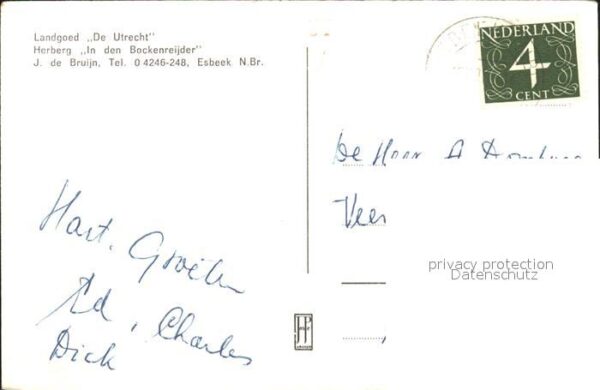 Landgoed „De Utrecht"
Herberg „In den Bockenreijder"
J. de Bruijn, Tel. 0 4246-248, Esbeek N.Br.
NEDERLAND
4
CENT
De Heer A
Veer
privacy protection
Datenschutz
Hart. Groeten
Ed, Charles
Dick
JP